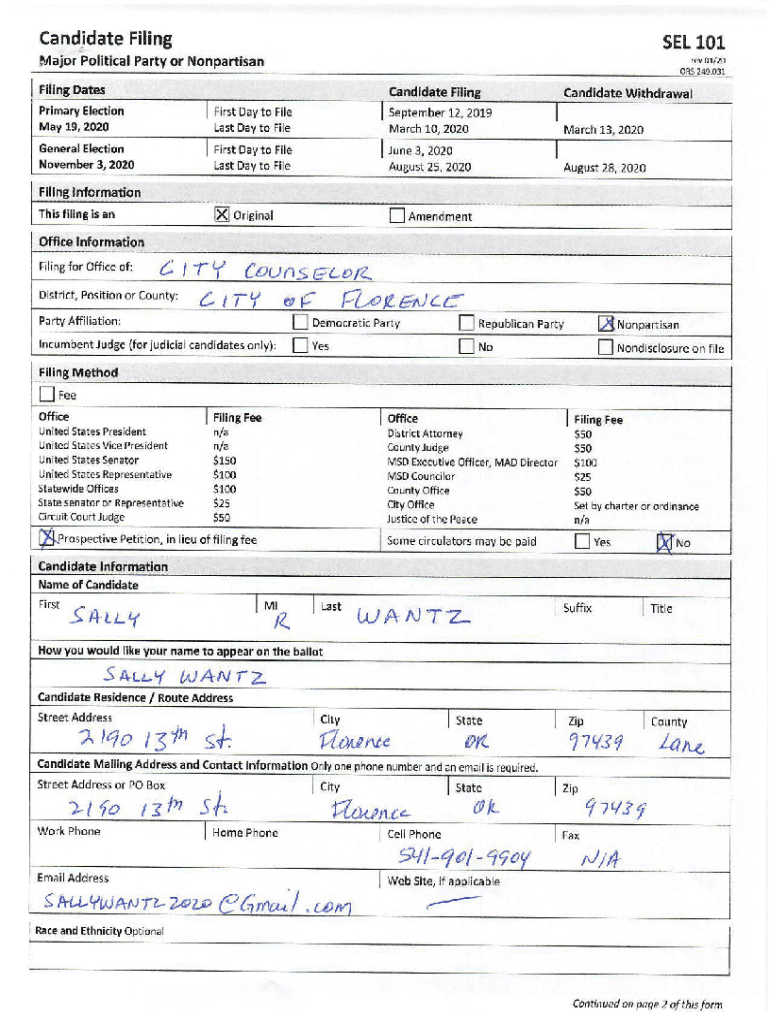 Candidate Filing
SEL 101
Major Political Party or Nonpartisan
rev 01/20
ORS 249.031
Filing Dates Candidate Filing Candidate Withdrawal
Primary Election First Day to File September 12, 2019
May 19, 2020 Last Day to File March 10, 2020 March 13, 2020
General Election First Day to File June 3, 2020
November 3, 2020 Last Day to File August 25, 2020 August 28, 2020
Filing Information
This filing is an X Original Amendment
Office Information
Filing for Office of: CITY COUNSELOR
District, Position or County: CITY OF FLORENCE
Party Affiliation: Democratic Party Republican Party X Nonpartisan
Incumbent Judge (for judicial candidates only): Yes No Nondisclosure on file
Filing Method
Fee
Office Filing Fee Office Filing Fee
United States President n/a District Attorney $50
United States Vice President n/a County Judge $50
United States Senator $150 MSD Executive Officer, MAD Director $100
United States Representative $100 MSD Councilor $25
Statewide Offices $100 County Office $50
State senator or Representative $25 City Office Set by charter or ordinance
Circuit Court Judge $50 Justice of the Peace n/a
X Prospective Petition, in lieu of filing fee Some circulators may be paid Yes X No
Candidate Information
Name of Candidate
First MI Last Suffix Title
SALLY R WANTZ
How you would like your name to appear on the ballot
SALLY WANTZ
Candidate Residence / Route Address
Street Address City State Zip County
2190 13th St. Florence OR 97439 Lane
Candidate Mailing Address and Contact Information Only one phone number and an email is required.
Street Address or PO Box City State Zip
2190 13th St. Florence OR 97439
Work Phone Home Phone Cell Phone Fax
541-901-9904 N/A
Email Address Web Site, if applicable
SALLYWANTZ2020@Gmail.com —
Race and Ethnicity Optional
Continued on page 2 of this form